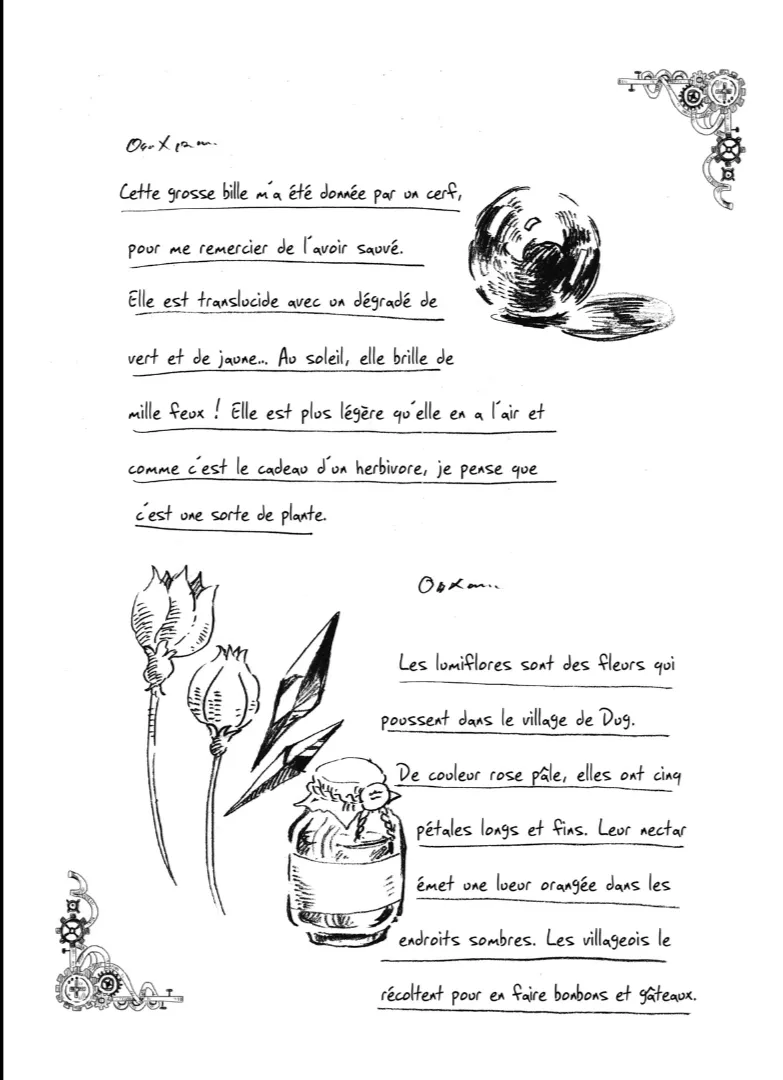 Cette grosse bille m'a été donnée par un cerf,
pour me remercier de l'avoir sauvé.
Elle est translucide avec un dégradé de
vert et de jaune... Au soleil, elle brille de
mille feux ! Elle est plus légère qu'elle en a l'air et
comme c'est le cadeau d'un herbivore, je pense que
c'est une sorte de plante.
Les lumiflores sont des fleurs qui
poussent dans le village de Dug.
De couleur rose pâle, elles ont cinq
pétales longs et fins. Leur nectar
émet une lueur orangée dans les
endroits sombres. Les villageois le
récoltent pour en faire bonbons et gâteaux.